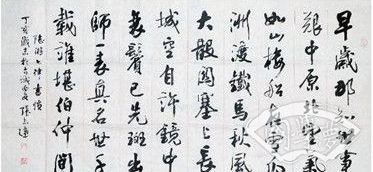 早歲那知世事
艱中原北望氣
如山樓船夜雪瓜
洲渡鐵馬秋風
大散關塞上長
城空自許鏡中
衰鬢已先斑出
師一表真名世千
載誰堪伯仲間
陸游七律書憤
丁亥歲